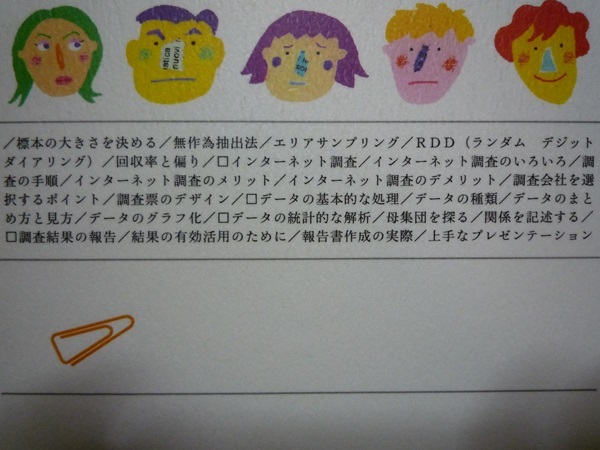 ／標本の大きさを決める／無作為抽出法／エリアサンプリング／ＲＤＤ（ランダム　デジット
ダイアリング）／回収率と偏り／□インターネット調査／インターネット調査のいろいろ／調
査の手順／インターネット調査のメリット／インターネット調査のデメリット／調査会社を選
択するポイント／調査票のデザイン／□データの基本的な処理／データの種類／データのまと
め方と見方／データのグラフ化／□データの統計的な解析／母集団を探る／関係を記述する／
□調査結果の報告／結果の有効活用のために／報告書作成の実際／上手なプレゼンテーション